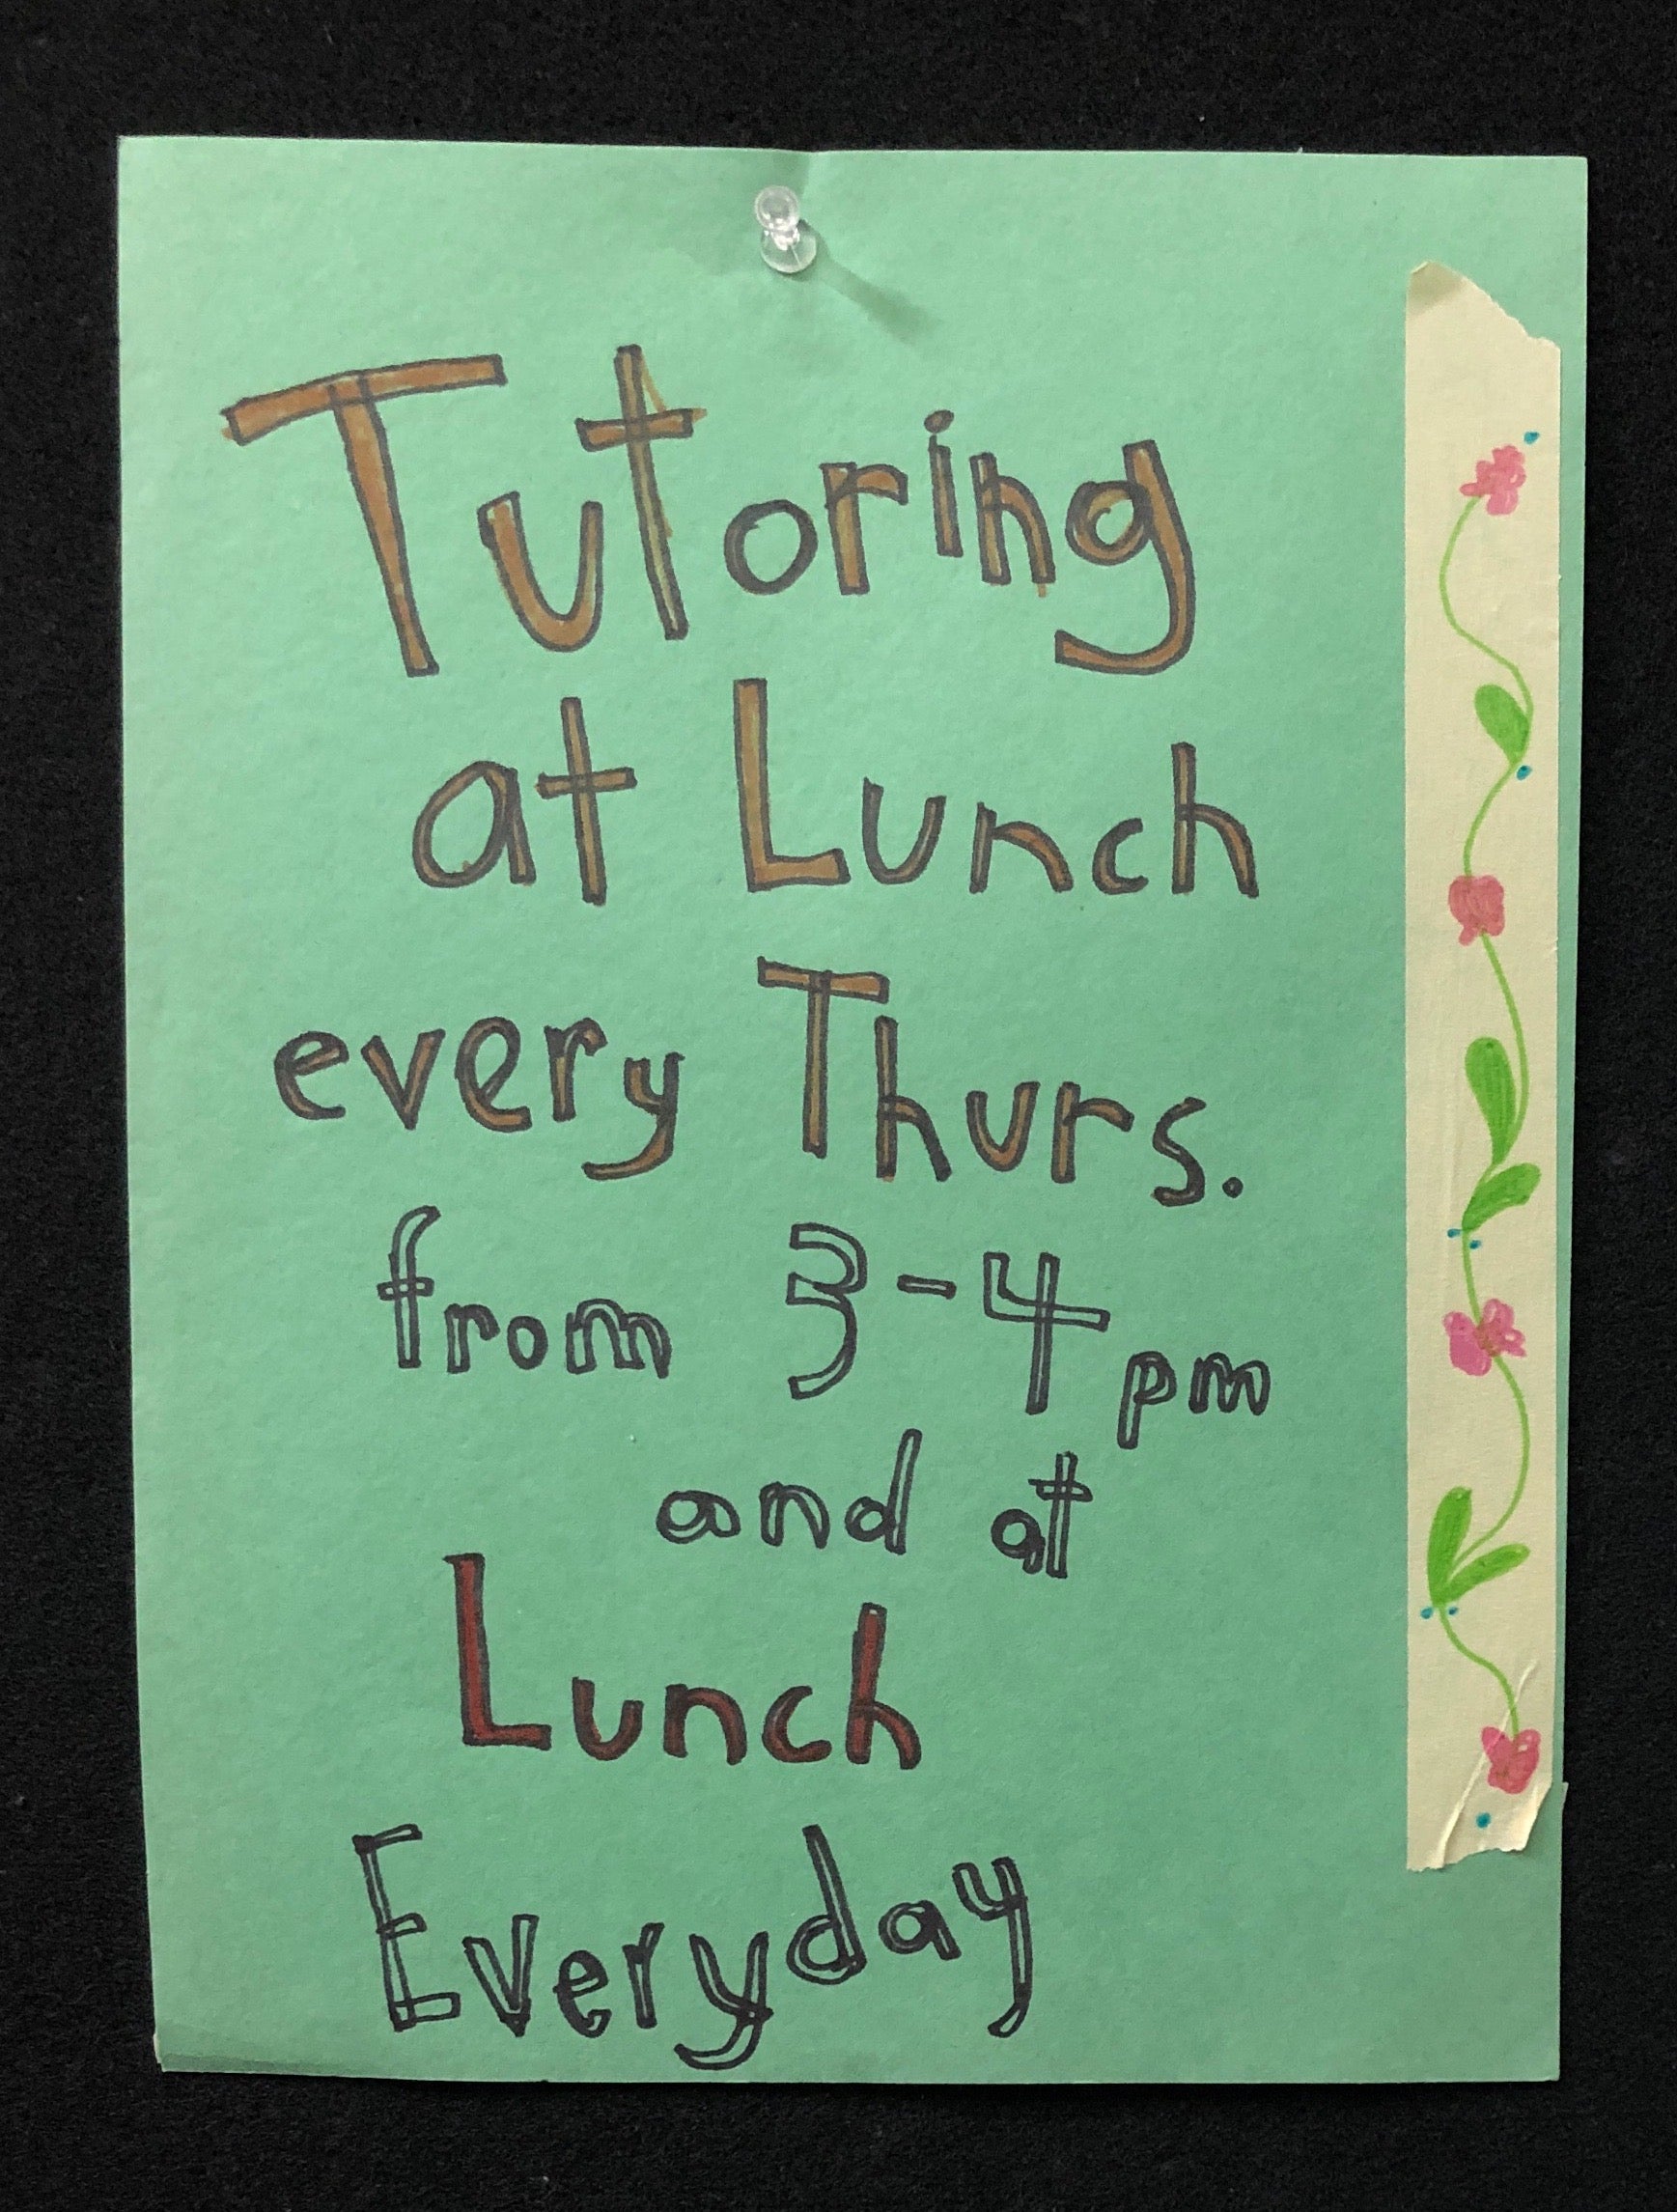 Tutoring
at Lunch
every Thurs.
from 3-4 pm
and at
Lunch
Everyday